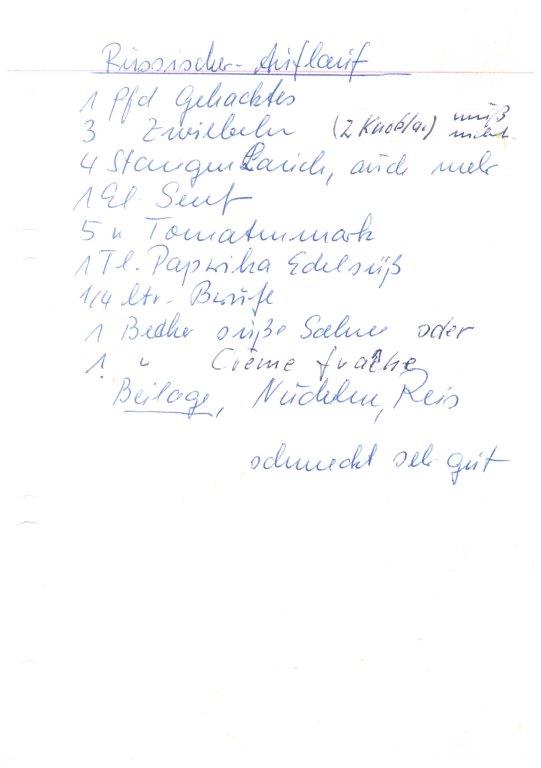 Russischer-Auflauf
1 Pfd Gehacktes
3 Zwiebeln (2 Knobla.) muß nicht
4 Stangen Lauch, auch mehr
1 El. Senf
5 " Tomatenmark
1 Tl. Paprika Edelsüß
1/4 ltr. Brühe
1 Becher süße Sahne oder
1 " Crème fraîche
Beilage, Nudeln, Reis
schmeckt sehr gut